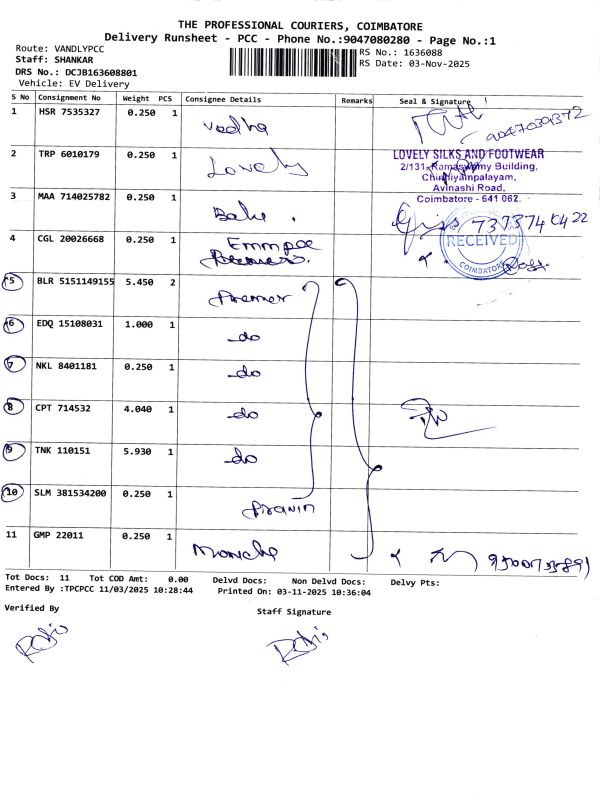 THE PROFESSIONAL COURIERS, COIMBATORE
Delivery Runsheet - PCC - Phone No.:9047080280 - Page No.:1
Route: VANDLYPCC
RS No.: 1636088
Staff: SHANKAR
RS Date: 03-Nov-2025
DRS No.: DCJB163608801
Vehicle: EV Delivery
S No Consignment No Weight PCS Consignee Details Remarks Seal & Signature
1 HSR 7535327 0.250 1 Vedha
2 TRP 6010179 0.250 1 Lovely
LOVELY SILKS AND FOOTWEAR
2/131, Ramaswamy Building,
Chinniyampalayam,
Avinashi Road,
Coimbatore - 641 062.
3 MAA 714025782 0.250 1
4 CGL 20026668 0.250 1
RECEIVED
COIMBATORE
5 BLR 5151149155 5.450 2
6 EDQ 15108031 1.000 1 do
7 NKL 8401181 0.250 1 do
8 CPT 714532 4.040 1 do
9 TNK 110151 5.930 1 do
10 SLM 381534200 0.250 1 Pravin
11 GMP 22011 0.250 1
Tot Docs: 11 Tot COD Amt: 0.00 Delvd Docs: Non Delvd Docs: Delvy Pts:
Entered By :TPCPCC 11/03/2025 10:28:44 Printed On: 03-11-2025 10:36:04
Verified By
Staff Signature